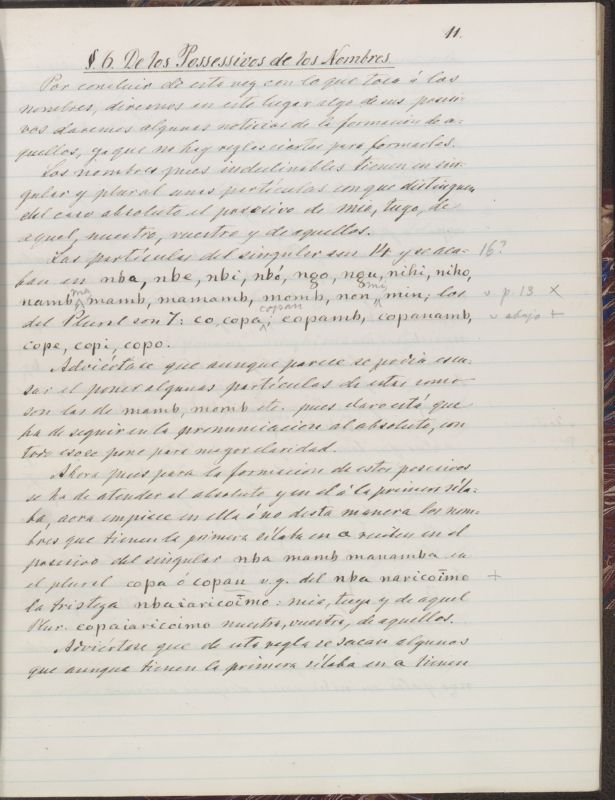 11.
§. 6. De los Possessivos de los Nombres.
Por concluir de esta vez con lo que toca á los
nombres, diremos en este lugar algo de sus posesi-
vos daremos algunas noticias de la formacion de a-
quellos, ya que no hay reglas ciertas para formarlos.
Los nombres pues indeclinables tienen en sin-
gular y plural unas particulas con que distinguen
del caso absoluto el posesivo de mio, tuyo, de
aquel, nuestro, vuestro y de aquellos.
Las particulas del singular son 14 y se aca- 16?
ban en nba, nbe, nbi, nbó, ngo, ngu, nihi, niho,
namb, ma mamb, mamamb, momb, non, mi min; los v. p. 13 X
del Plural son 7: co, copa, copan copamb, copanamb, v abajo +
cope, copi, copo.
Adviértase que aunque parece se podia escu-
sar el poner algunas particulas de estas como
son las de mamb, momb etc. pues claro está que
ha de seguir en la pronunciacion al absoluto, con
todo eso se pone para mayor claridad.
Ahora pues para la formacion de estos posesivos
se ha de atender al absoluto y en el á la primera síla-
ba, aora empiece en ella ó no desta manera los nom-
bres que tienen la primera sílaba en a reciben en el
posesivo del singular nba mamb manamba en
el plural copa ó copan v.g. del nba naricoīmo +
la tristeza nbaiaricoīmo: mio, tuyo y de aquel
Plur. copaiaricoimo nuestro, vuestro, de aquellos.
Adviértase que de esta regla se sacan algunos
que aunque tienen la primera sílaba en a tienen